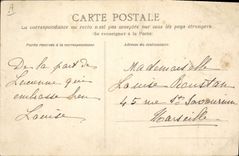 CARTE POSTALE
La correspondance au recto n'est pas acceptée par tous les pays étrangers.
(Se renseigner à la Poste)
Partie réservée à la correspondance
Adresse du destinataire
De la part de
qui
embrasse bien
Louise
Mademoiselle
Louise
45 rue
Marseille